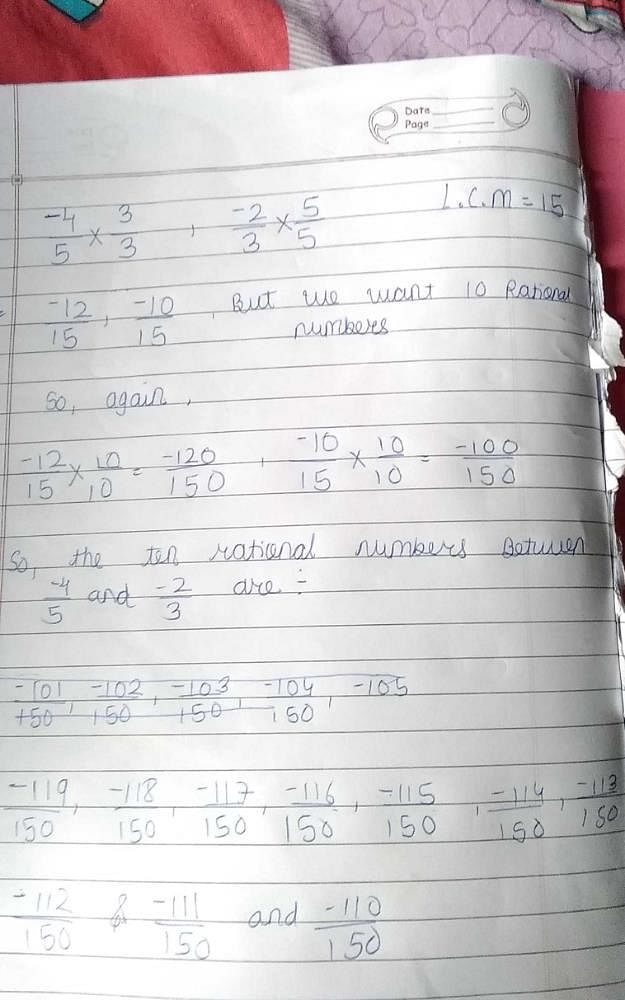 Date
Page
L.C.M = 15
-4/5 × 3/3 , -2/3 × 5/5
= -12/15 , -10/15 , But we want 10 Rational
numbers
So, again,
-12/15 × 10/10 = -120/150 , -10/15 × 10/10 = -100/150
So, the ten rational numbers Between
-4/5 and -2/3 are :-
-101/150, -102/150, -103/150, -104/150, -105
-119/150, -118/150, -117/150, -116/150, -115/150, -114/150, -113/150
-112/150 & -111/150 and -110/150